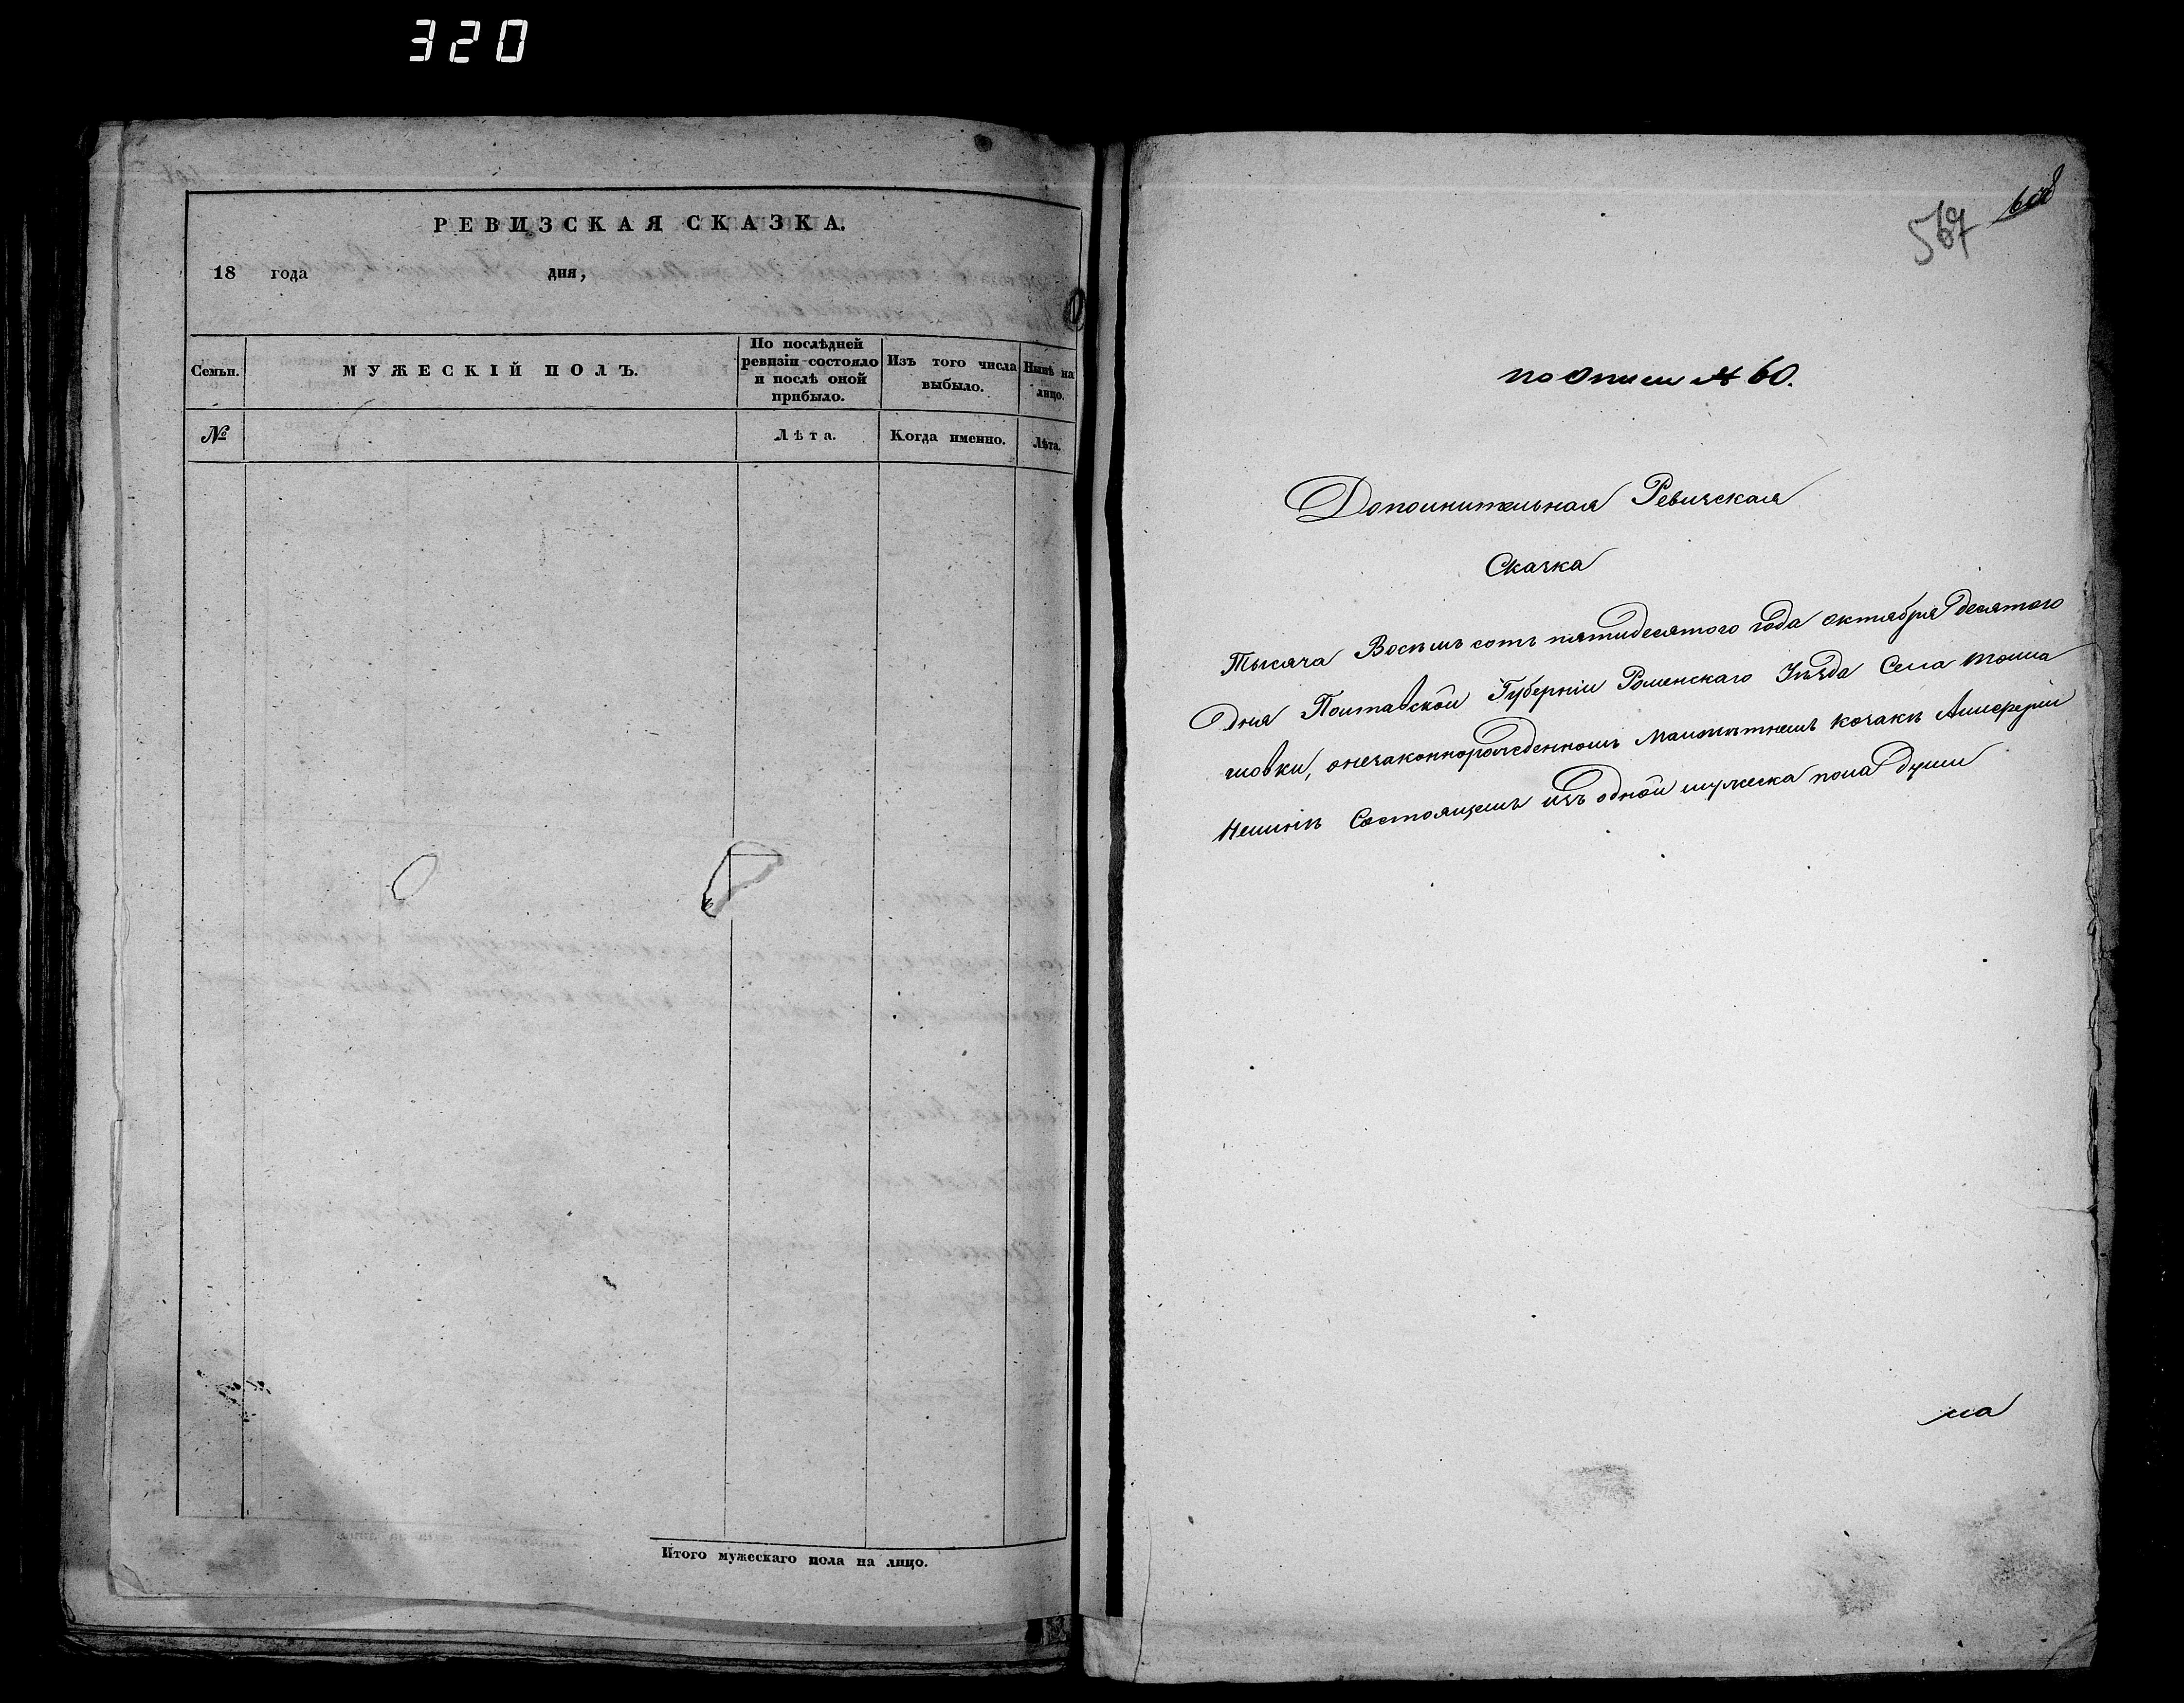 320
РЕВИЗСКАЯ СКАЗКА.
18 года дня,
Семьи.
МУЖЕСКІЙ ПОЛЪ.
По послѣдней ревизіи состояло и послѣ оной прибыло.
Изъ того числа выбыло.
Нынѣ на лицо.
№
Лѣта.
Когда именно.
Лѣта.
Итого мужескаго пола на лицо.
567
по описи № 60.
Дополнительная Ревизская
Сказка
Тысяча Восемь сотъ пятидесятого года октября десятого
Дня Полтавской Губерніи Роменскаго Уѣзда Села
незаконнорожденномъ Малолѣтнемъ козакѣ
Состоящемъ изъ одной мужеска пола души